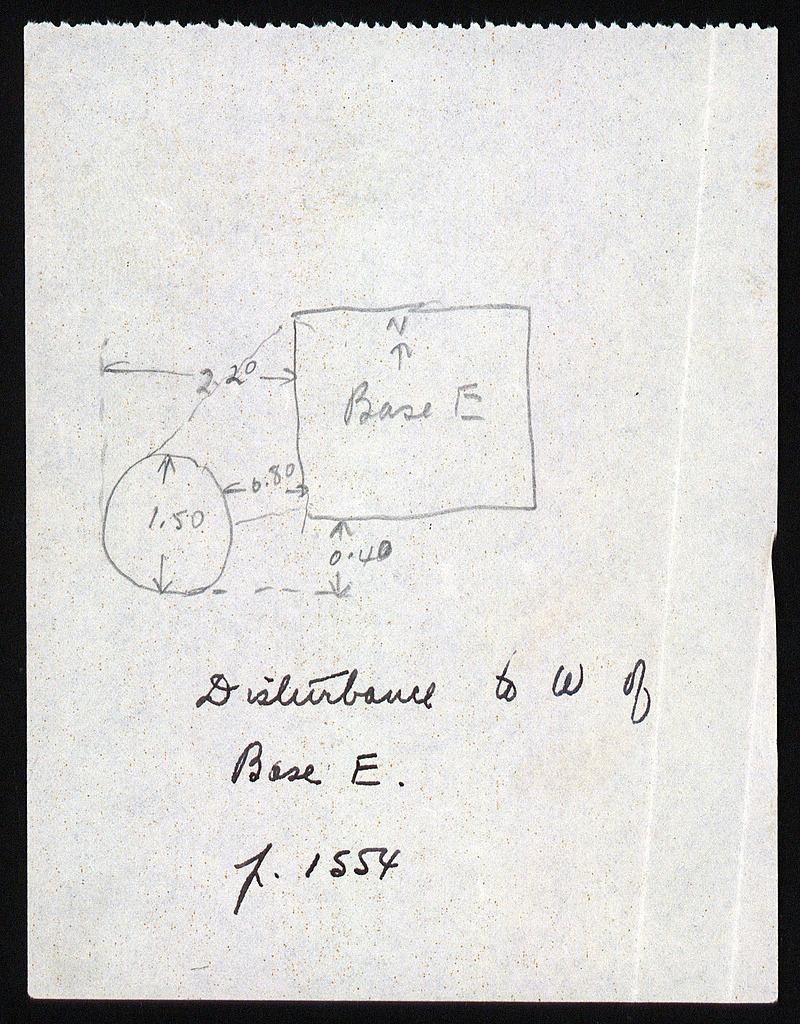 N
2.20
Base E
0.80
1.50
0.40
Disturbance to W of
Base E.
p. 1554